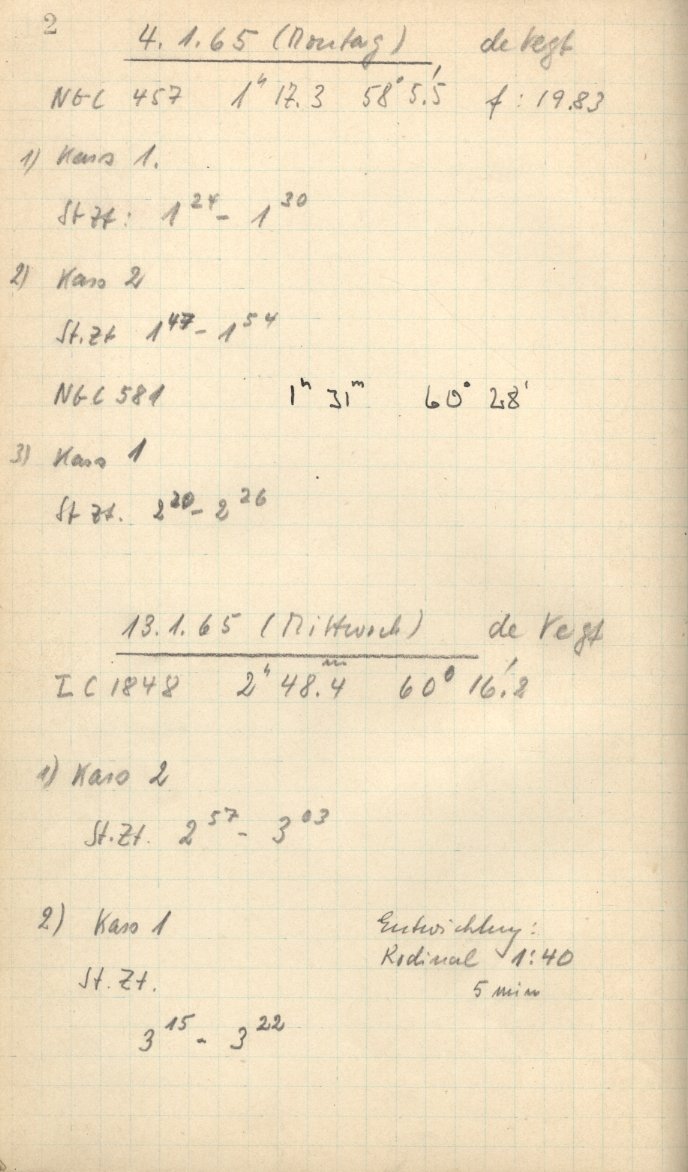 2
4.1.65 (Montag) de Vegt
NGC 457 1ʰ 17.3 58° 5.′5 f: 19.83
1) Kass 1.
St.Zt: 1²⁴ - 1³⁰
2) Kass 2
St.Zt 1⁴⁷ - 1⁵⁴
NGC 581 1ʰ 31ᵐ 60° 28'
3) Kass 1
St.Zt. 2²⁰ - 2²⁶
13.1.65 (Mittwoch) de Vegt
IC 1848 2ʰ 48.ᵐ4 60° 16.′2
1) Kass 2
St.Zt. 2⁵⁷ - 3⁰³
2) Kass 1
St.Zt.
3¹⁵ - 3²²
Entwicklung:
Rodinal 1:40
5 min